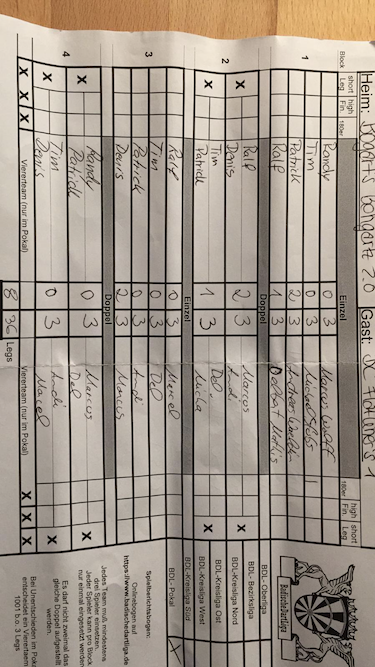 Heim: Bongarts 2.0 Gast: SC
Block short Leg high Fin 180er Einzel 180er high Fin short Leg
1 Randy 0 3 Marcus
Tim 0 3 Michael 1
Patrick 2 3 Andreas
Ralf 1 3
Doppel
2 X Ralf Denis 2 3 Marcus Andi
X Tim Patrick 1 3 Del Micha X
Einzel
3 Ralf 0 3 Marcel
Tim 0 3 Del
Patrick 0 3 Andi
Denis 2 3 Marcus
Doppel
4 X Randy Patrick 0 3 Marcus Del X
X Tim Denis 0 3 Andi Marcel X
X X X Viererteam (nur im Pokal) Viererteam (nur im Pokal) X X X
8 36 Legs
Badische Dartliga
BDL- Oberliga
BDL- Bezirksliga
BDL-Kreisliga Nord
BDL-Kreisliga Ost
BDL-Kreisliga West
BDL-Kreisliga Süd X
BDL- Pokal
Spielberichtsbogen:
Onlinebogen auf
https://www.badischedartliga.de
Jedes Team muß mindestens
drei Spieler einsetzen.
Jeder Spieler kann pro Block
nur einmal eingesetzt werden
Es darf nicht zweimal das
gleiche Doppel aufgestellt
werden.
Bei Unentschieden im Pokal
entscheidet ein Viererteam
1001 b.o. 3 Legs